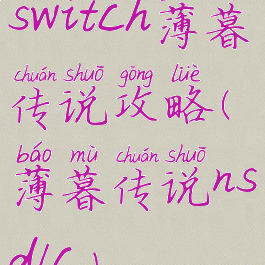 switch薄暮
chuán shuō gōng lüè
传说攻略(
báo mù chuán shuō
薄暮传说ns
dlc)